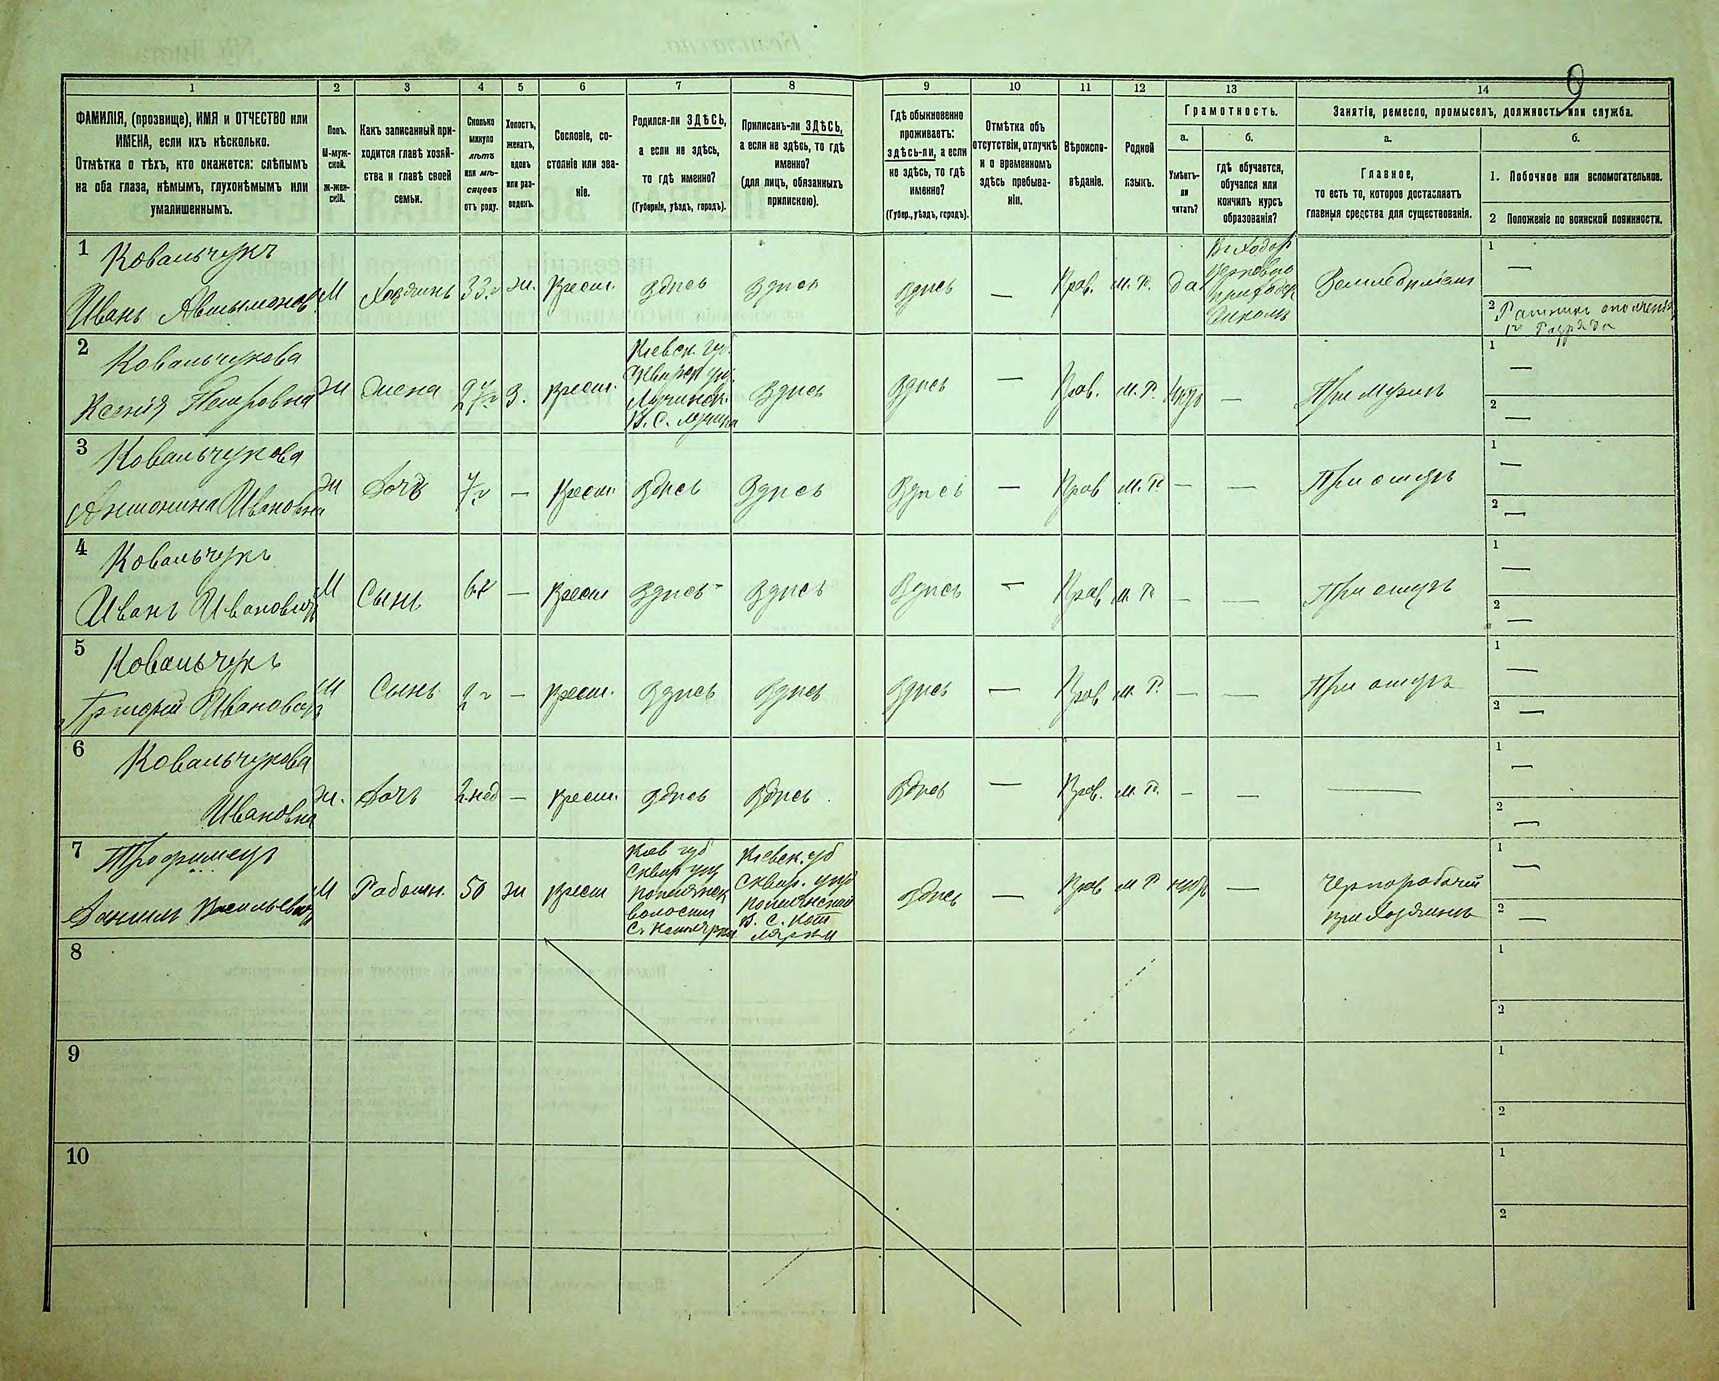 9
1 2 3 4 5 6 7 8 9 10 11 12 13 14
ФАМИЛІЯ, (прозвище), ИМЯ и ОТЧЕСТВО или
ИМЕНА, если ихъ нѣсколько.
Отмѣтка о тѣхъ, кто окажется: слѣпымъ
на оба глаза, нѣмымъ, глухонѣмымъ или
умалишеннымъ.
Полъ.
М-муж-
ской.
ж-жен-
скій.
Какъ записанный при-
ходится главѣ хозяй-
ства и главѣ своей
семьи.
Сколько
минуло
лѣтъ
или мѣ-
сяцевъ
отъ роду.
Холостъ,
женатъ,
вдовъ
или раз-
веденъ.
Сословіе, со-
стояніе или зва-
ніе.
Родился-ли ЗДѢСЬ,
а если не здѣсь,
то гдѣ именно?
(Губернія, уѣздъ, городъ).
Приписанъ-ли ЗДѢСЬ,
а если не здѣсь, то гдѣ
именно?
(для лицъ, обязанныхъ
припискою).
Гдѣ обыкновенно
проживаетъ:
здѣсь-ли, а если
не здѣсь, то гдѣ
именно?
(Губер., уѣздъ, городъ).
Отмѣтка объ
отсутствіи, отлучкѣ
и о временномъ
здѣсь пребыва-
ніи.
Вѣроиспо-
вѣданіе.
Родной
языкъ.
Грамотность.
а.
Умѣетъ-
ли
читать?
б.
Гдѣ обучается,
обучался или
кончилъ курсъ
образованія?
Занятія, ремесло, промыселъ, должность или служба.
а.
Главное,
то есть то, которое доставляетъ
главныя средства для существованія.
б.
1. Побочное или вспомогательное.
2 Положеніе по воинской повинности.
1 Ковальчукъ
Иванъ М Хозяинъ 33 г ж. Крест. здѣсь здѣсь здѣсь — Прав. м. Р. да Земледѣліемъ
1 —
2 Ратникъ ополченія
1го Разряда
2 Ковальчукова
Ксенія Петровна ж жена 27 г з. крест. Здѣсь Здѣсь — Прав. м. Р. —
Кіевск. губ.
Сквирск. уѣз.
При мужѣ
1 —
2 —
3 Ковальчукова
Антонина Ивановна ж Дочь 7 г — Крест. Здѣсь Здѣсь Здѣсь — Прав м. Р. — — При отцѣ
1 —
2 —
4 Ковальчукъ
Иванъ Ивановичъ М Сынъ — крест Здѣсь Здѣсь Здѣсь — Прав м. Р. — — При отцѣ
1 —
2 —
5 Ковальчукъ
Григорій Ивановичъ М Сынъ 2 г — крест. Здѣсь Здѣсь Здѣсь — Прав м. Р. — — При отцѣ
1 —
2 —
6 Ковальчукова
Ивановна ж. Дочь 2 нед — крест. здѣсь Здѣсь Здѣсь — Прав. м. Р. — — —
1 —
2 —
7 Трофимецъ
Даніилъ Васильевичъ М Работн. 50 ж крест Здѣсь — Прав м Р —
Кіев губ
Сквир уѣз
волости
Кіевск. губ
Сквир. уѣз
Чернорабочій
при Хозяинѣ
1 —
2 —
8
1
2
9
1
2
10
1
2